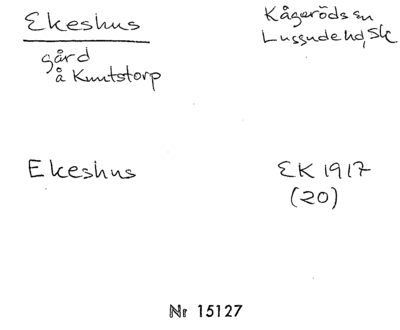 Ekeshus
Kågeröds sn
Luggude hd, Sk
gård
å Knutstorp
Ekeshus
EK 1917
(20)
Nr 15127